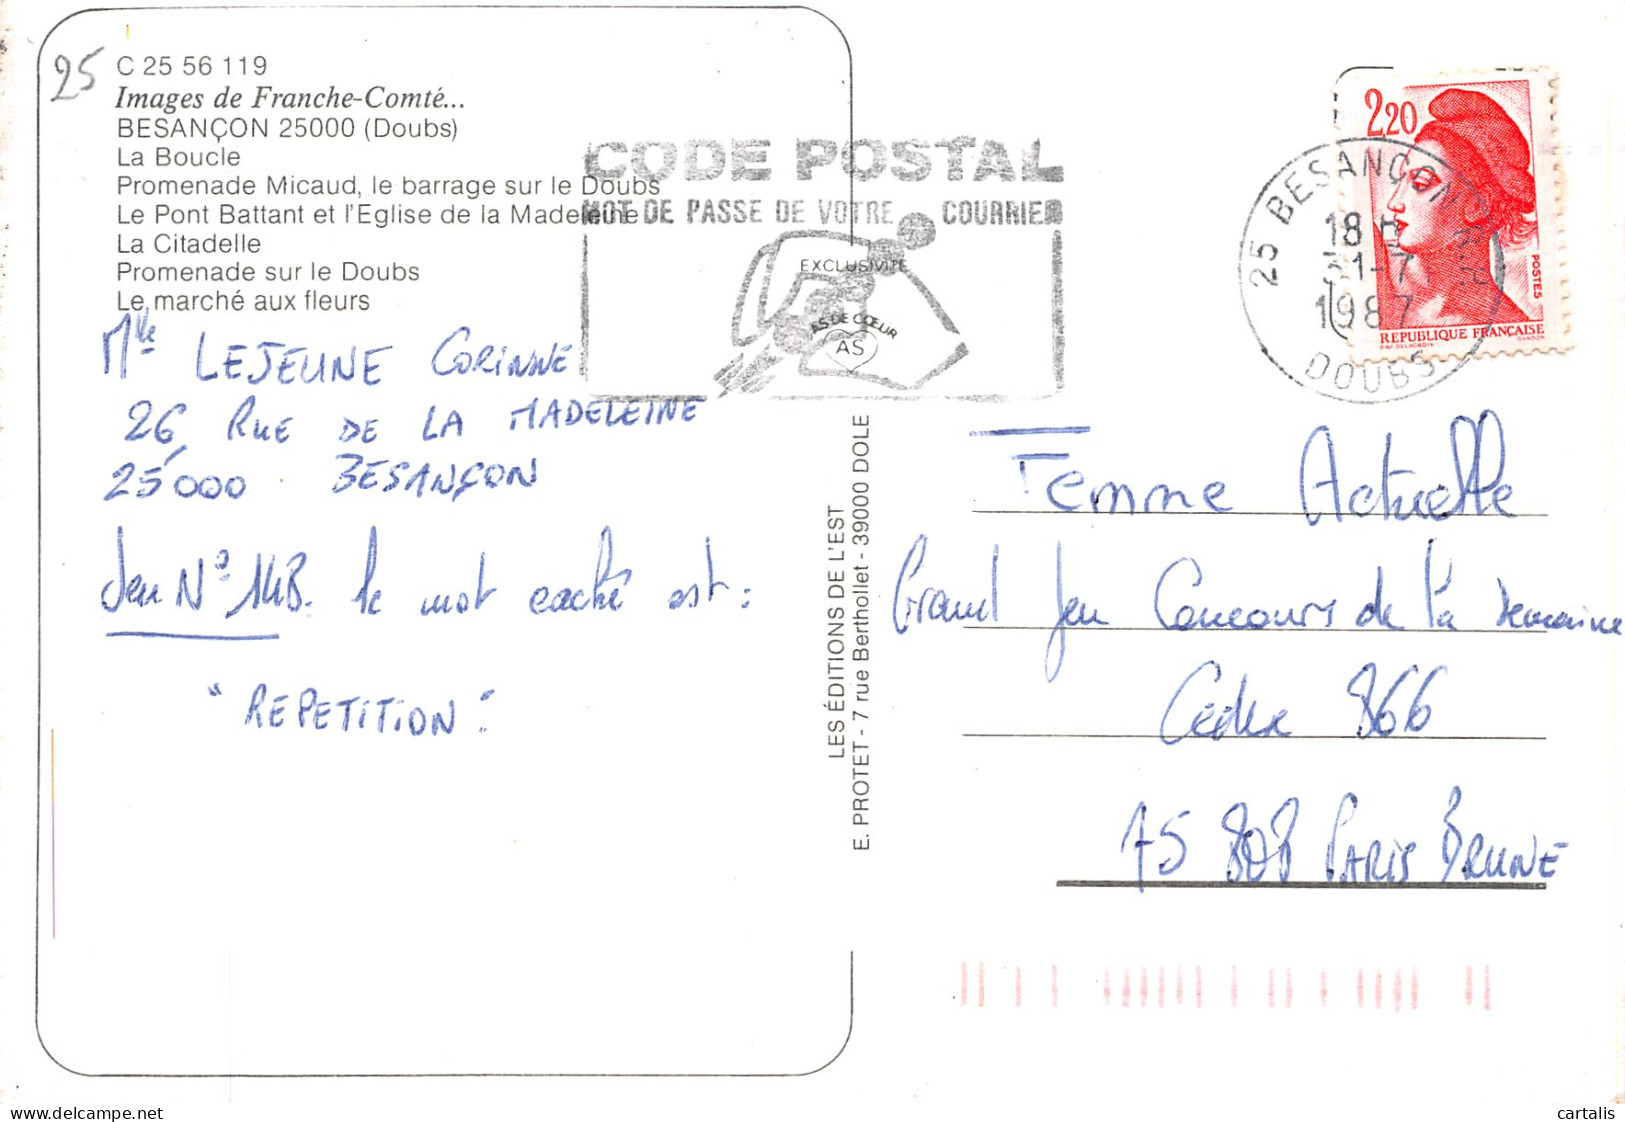 25
C 25 56 119
Images de Franche-Comté...
BESANÇON 25000 (Doubs)
La Boucle
Promenade Micaud, le barrage sur le Doubs
Le Pont Battant et l'Eglise de la Madeleine
La Citadelle
Promenade sur le Doubs
Le marché aux fleurs
Mlle LEJEUNE CORINNE
26, RUE DE LA MADELEINE
25000 BESANÇON
Jeu N° 148. le mot caché est :
"REPETITION."
CODE POSTAL
MOT DE PASSE DE VOTRE COURRIER
EXCLUSIVITÉ
AS DE CŒUR
AS
LES ÉDITIONS DE L'EST
E. PROTET - 7 rue Berthollet - 39000 DOLE
2,20
POSTES
REPUBLIQUE FRANÇAISE
25 BESANÇON
18 H
31-7
1987
DOUBS
Femme Actuelle
Grand Jeu Concours de la semaine
Cedex 866
75 808 PARIS BRUNE
cartalis